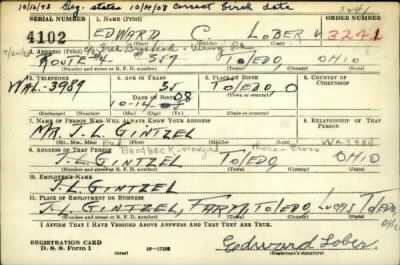 10/16/43 Reg. states 10/14/08 correct birth date
SERIAL NUMBER 1. NAME (Print) ORDER NUMBER
4102 EDWARD C. LOBER 3241
(First) (Middle) (Last)
2. ADDRESS (Print)
ROUTE 4 - 357 TOLEDO, OHIO
(Number and street or R. F. D. number) (Town) (County) (State)
3. TELEPHONE 4. AGE IN YEARS 5. PLACE OF BIRTH 6. COUNTRY OF CITIZENSHIP
WAL-3989 35 TOLEDO,
DATE OF BIRTH (Town or county)
10-14 08 O
(Exchange) (Number) (Mo.) (Day) (Yr.) (State or country)
7. NAME OF PERSON WHO WILL ALWAYS KNOW YOUR ADDRESS RELATIONSHIP OF THAT PERSON
MR. J. L. GINTZEL
(Mr., Mrs., Miss) (First) (Middle) (Last)
8. ADDRESS OF THAT PERSON
J. L. GINTZEL TOLEDO, OHIO
(Number and street or R. F. D. number) (Town) (County) (State)
10. EMPLOYER'S NAME
J. L. GINTZEL
11. PLACE OF EMPLOYMENT OR BUSINESS
J. L. GINTZEL, FARM, TOLEDO, LUCAS TOLEDO,
(Number and street or R. F. D. number) (Town) (County) (State)
I AFFIRM THAT I HAVE VERIFIED ABOVE ANSWERS AND THAT THEY ARE TRUE.
REGISTRATION CARD
D. S. S. Form 1 (over) 16-17105
Edward Lober